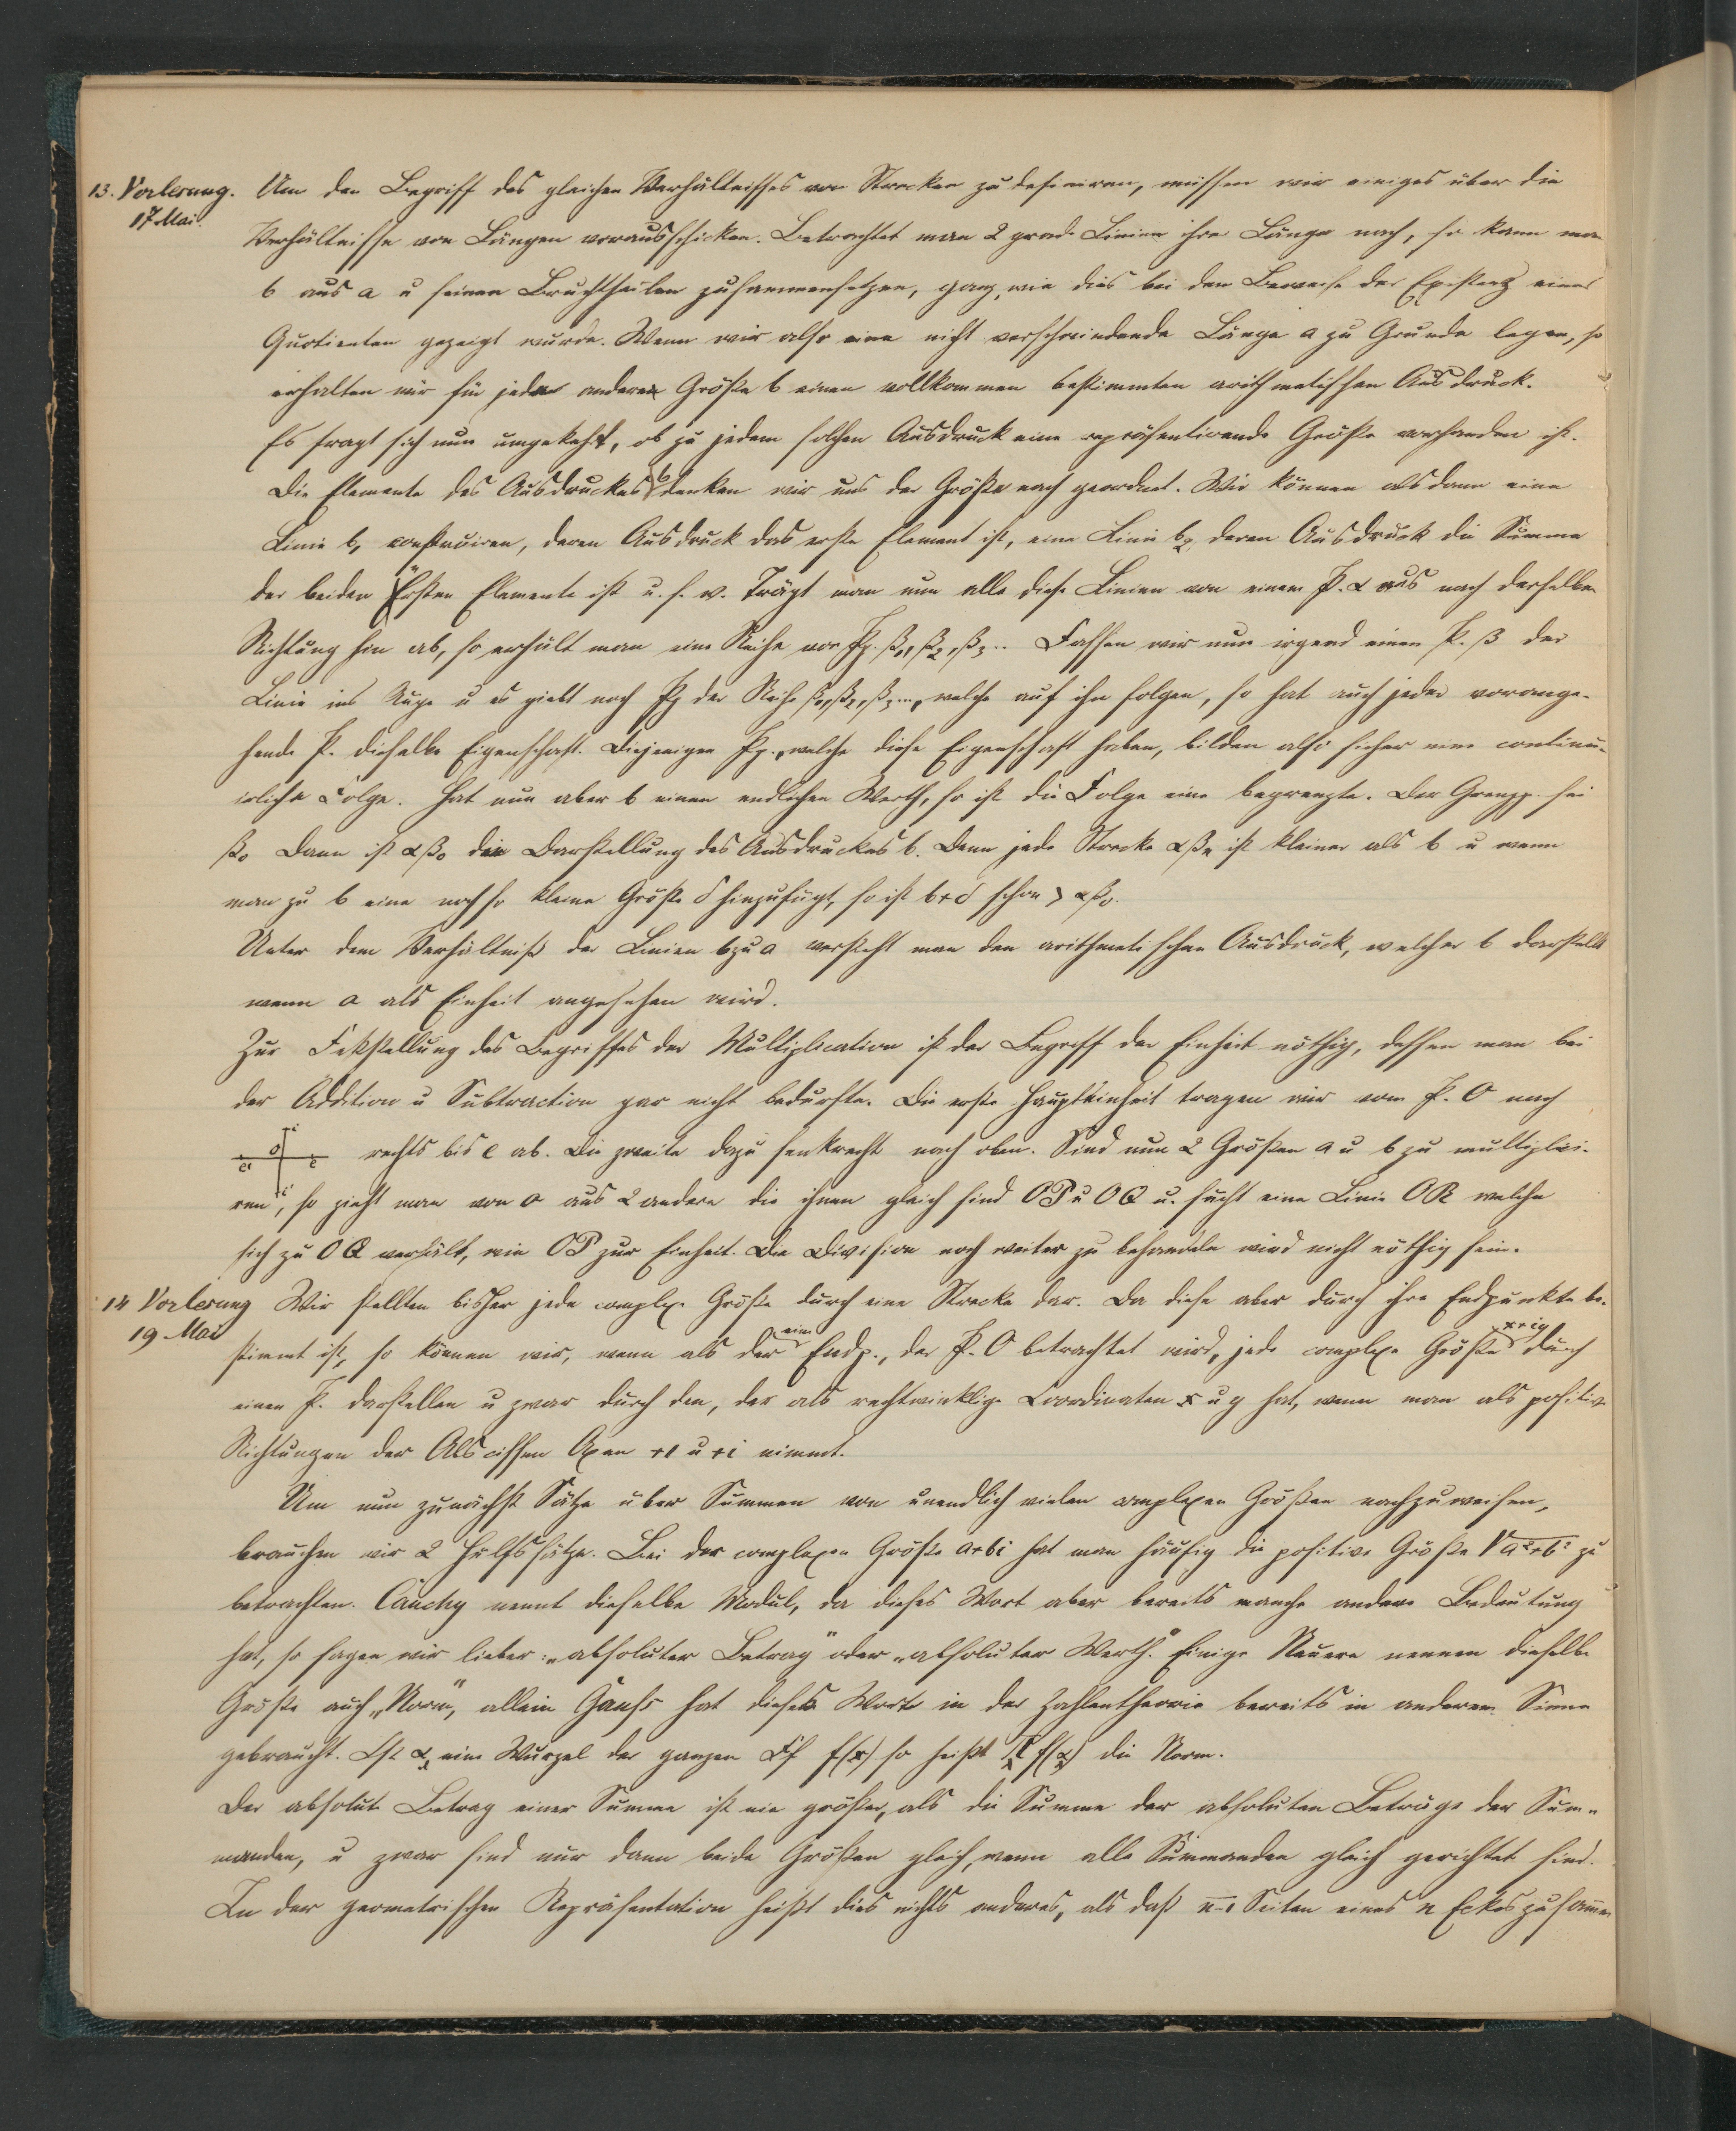 13. Vorlesung. Um den Begriff des gleichen Verhältnisses von Strecken zu definiren, müssen wir einiges über die
17 Mai. Verhältnisse von Längen vorausschicken. Betrachtet man 2 grade Linien ihrer Länge nach, so kann man
b aus a u seinen Bruchtheilen zusammensetzen, ganz, wie dies bei dem Beweise der Existenz eines
Quotienten gezeigt wurde. Wenn wir also eine nicht verschwindende Länge a zu Grunde legen, so
erhalten wir für jede andere Größe b einen vollkommen bestimmten arithmetischen Ausdruck.
Es fragt sich nun umgekehrt, ob zu jedem solchen Ausdruck eine repräsentirende Größe vorhanden ist.
Die Elemente des Ausdruckes b denken wir uns der Größe nach geordnet. Wir können alsdann eine
Linie b₁ construiren, deren Ausdruck das erste Element ist, eine Linie b₂, deren Ausdruck die Summe
der beiden ersten Elemente ist u. s. w. Trägt man nun alle diese Linien von einem P. α aus nach derselben
Richtung hin ab, so erhält man eine Reihe von Pp. β₁, β₂, β₃.. Fassen wir nun irgend einen P. β der
Linie ins Auge u es giebt noch Pp der Reihe β₁, β₂, β₃..., welche auf ihn folgen, so hat auch jeder vorange-
hende P. dieselbe Eigenschaft. Diejenigen Pp., welche diese Eigenschaft haben, bilden also sicher eine continu-
irliche Folge. Hat nun aber b einen endlichen Werth, so ist die Folge eine begrenzte. Der Grenzp. sei
β₀ Dann ist αβ₀ die Darstellung des Ausdruckes b. Denn jede Strecke αβₙ ist kleiner als b u wenn
man zu b eine noch so kleine Größe δ hinzufügt, so ist b+δ schon > αβ₀.
Unter dem Verhältniß der Linien b zu a versteht man den arithmetischen Ausdruck, welcher b darstellt
wenn a als Einheit angesehen wird.
Zur Feststellung des Begriffes der Multiplication ist der Begriff der Einheit nöthig, dessen man bei
der Addition u Subtraction gar nicht bedurfte. Die erste Haupteinheit tragen wir vom P. O nach
rechts bis e ab. Die zweite dazu senkrecht nach oben. Sind nun 2 Größen a u b zu multiplici-
ren, so zieht man von o aus 2 andere die ihnen gleich sind OP u OQ u. sucht eine Linie OR welche
sich zu OQ verhält, wie OP zur Einheit. Die Division noch weiter zu behandeln wird nicht nöthig sein.
14 Vorlesung Wir stellten bisher jede complexe Größe durch eine Strecke dar. Da diese aber durch ihre Endpunkte be-
19 Mai stimmt ist, so können wir, wenn als der eine Endp., der P. O betrachtet wird, jede complexe Größe x+iy durch
einen P. darstellen u zwar durch den, der als rechtwinklige Coordinaten x u y hat, wenn man als positive
Richtungen der Abscissen Axen +1 u +i nimmt.
Um nun zunächst Sätze über Summen von unendlich vielen complexen Größen nachzuweisen,
brauchen wir 2 Hülfssätze. Bei der complexen Größe a+bi hat man häufig die positive Größe √a²+b² zu
betrachten. Cauchy nennt dieselbe Modul, da dieses Wort aber bereits manche andere Bedeutung
hat, so sagen wir lieber: „absoluter Betrag" oder „absoluter Werth". Einige Neuere nennen dieselbe
Größe auch „Norm", allein Gauss hat dieses Wort in der Zahlentheorie bereits in anderem Sinne
gebraucht. Ist αₓ eine Wurzel der ganzen Ff f(x) so heißt Π f(α) die Norm.
Der absolute Betrag einer Summe ist nie größer, als die Summe der absoluten Beträge der Sum-
manden, u zwar sind nur dann beide Größen gleich, wenn alle Summanden gleich gerichtet sind.
In der geometrischen Repräsentation heißt dies nichts anderes, als daß n-1 Seiten eines n Eckes zusammen